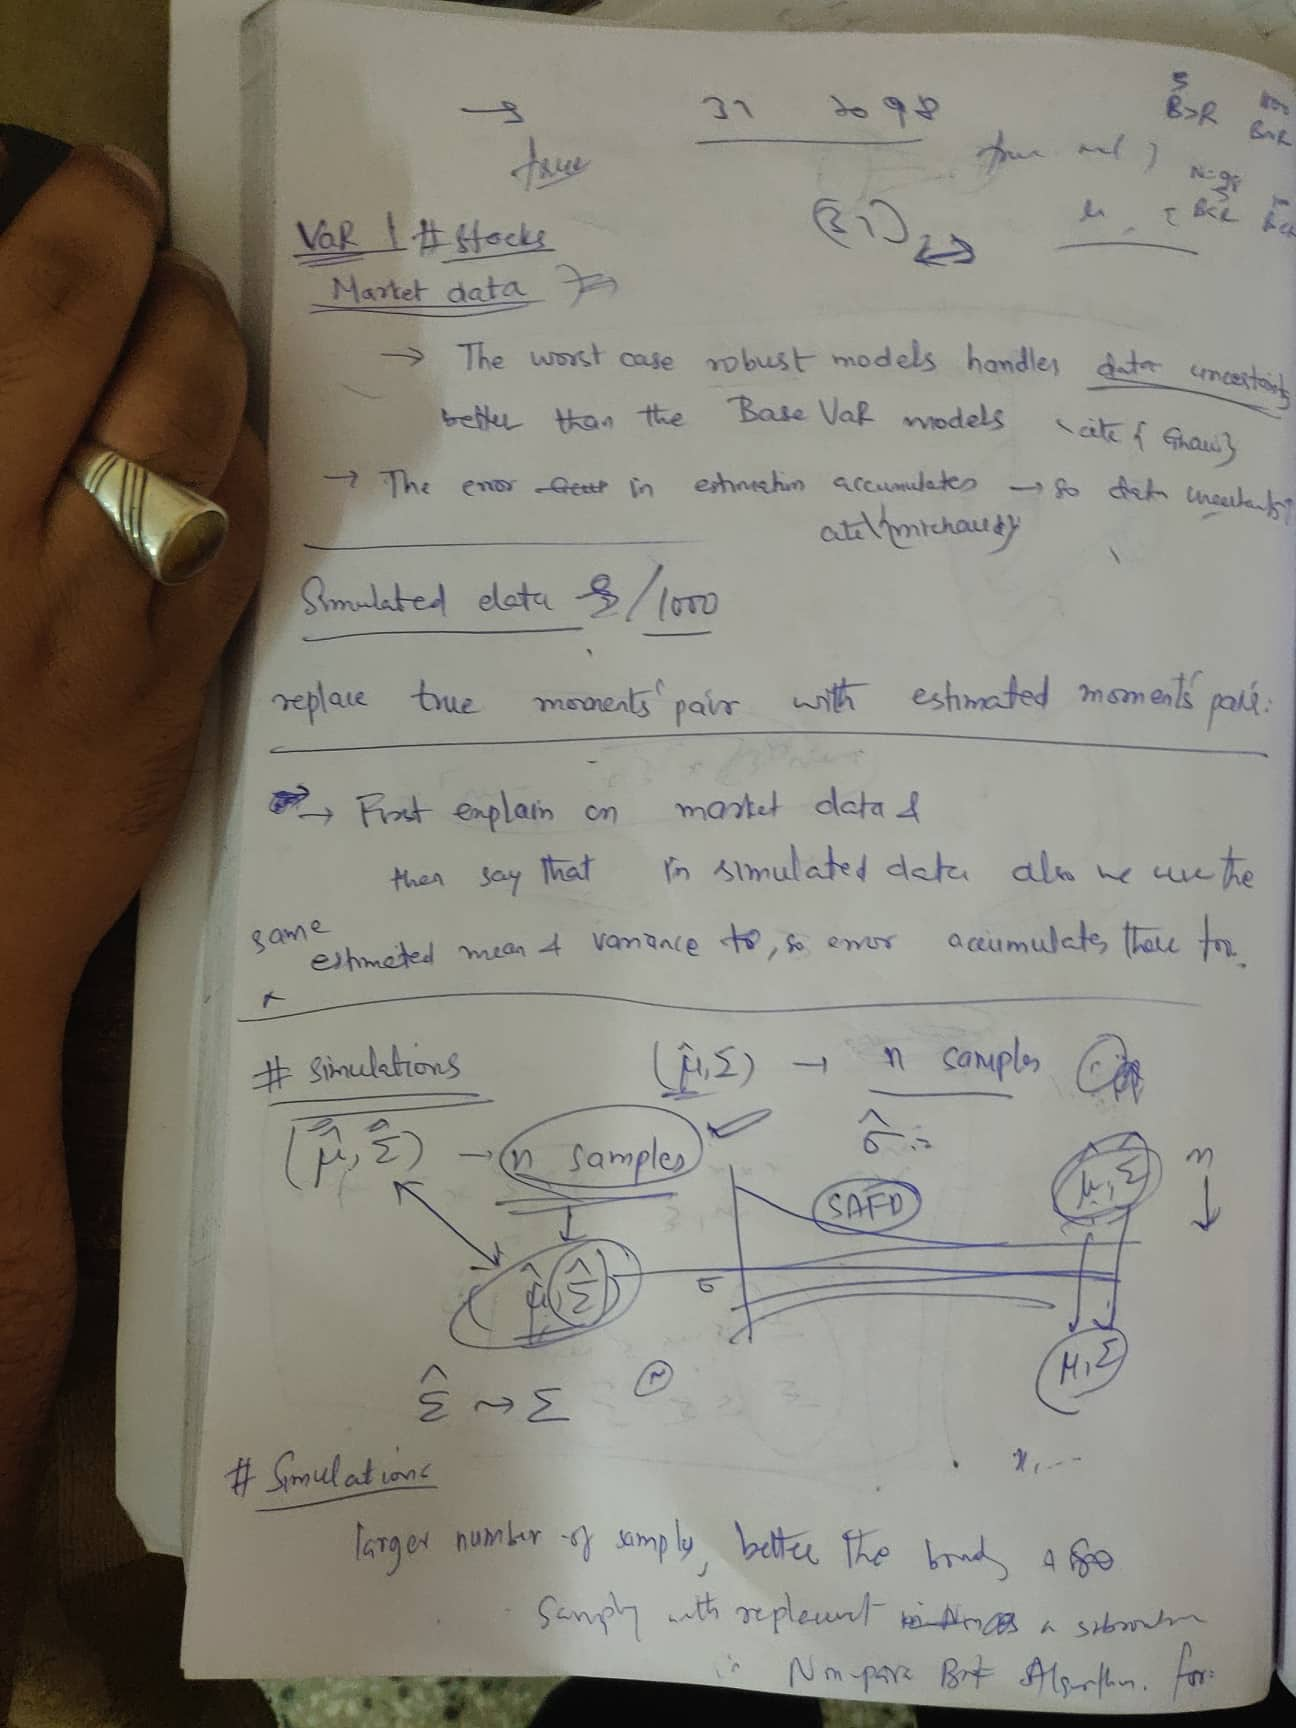 31 98
true
B>R
VaR | # Stocks
(31)
Market data
→ The worst case robust models handles data uncertainty
better than the Base VaR models \cite{Ghaui}
→ The error in estimation accumulates → so data uncertainty
Simulated data /1000
replace true moments' pair with estimated moments' pair.
→ First explain on market data &
then say that in simulated data also we use the
same
estimated mean & variance to, so error accumulates there too.
# simulations (μ̂,Σ) → n samples
(μ̂, Σ̂) → n samples σ̂ μ,Σ n
SAFD
(μ̂, Σ̂) σ
μ,Σ
Σ̂ → Σ N
# Simulations
larger number of samples, better the bounds
Sampling with replacement a subroutine
in Non-para Boot Algorithm. for